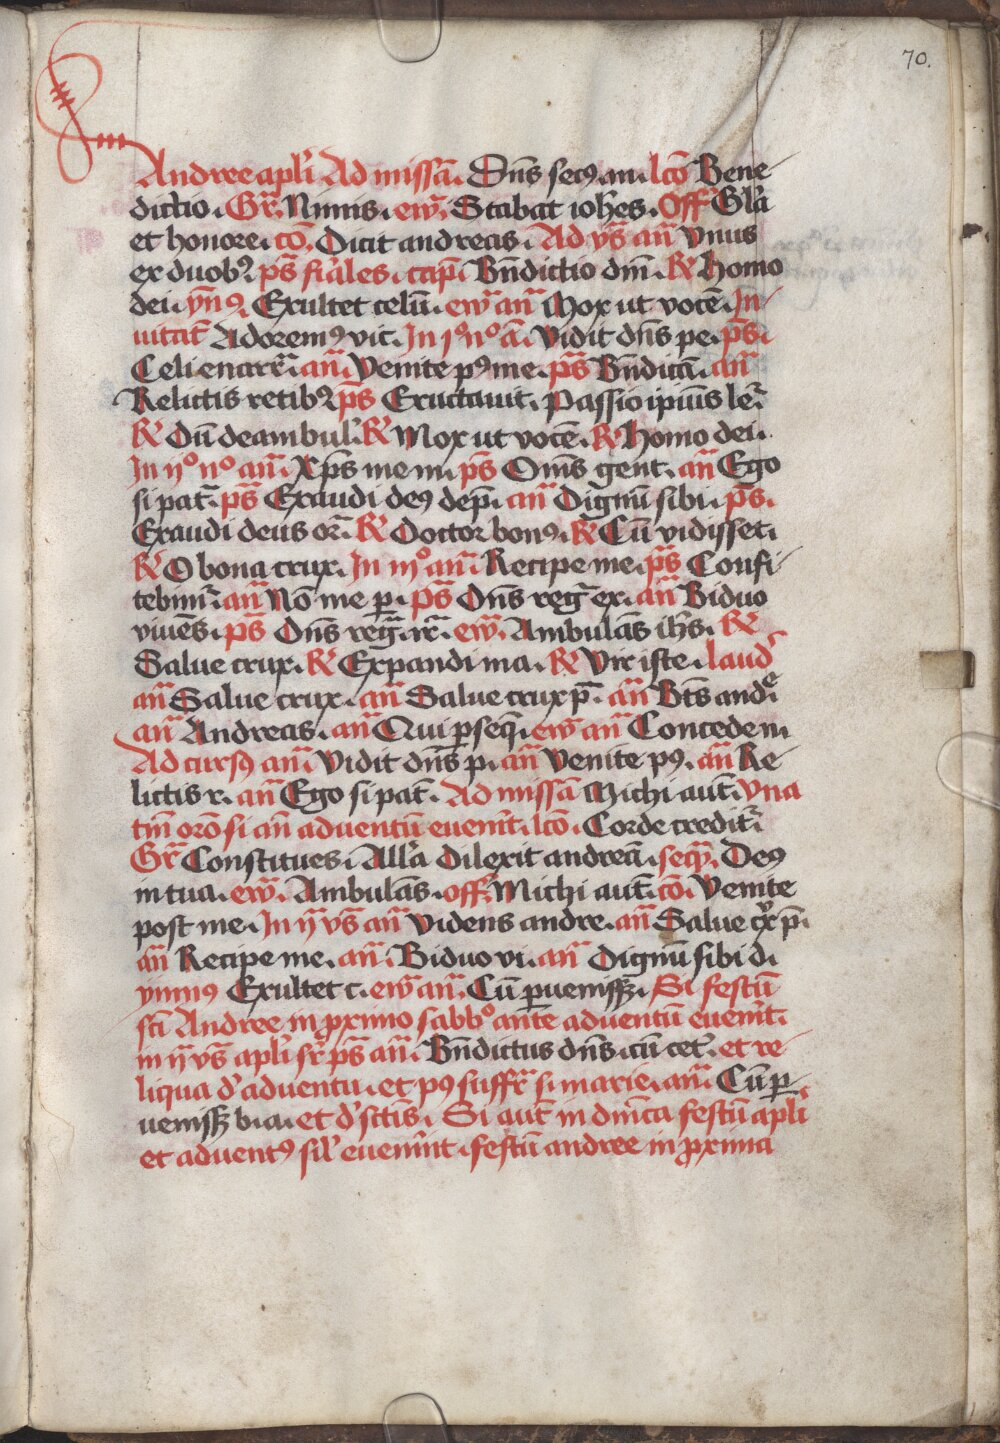 70.
Andree apl'i Ad missā. Dn̄s secꝰ .m. lc̄o Bene
dictio. Gr̄. Nimis. ew̄. Stabat ioh̄es. Off Gl'a
et honore. cō. Dicit andreas. Ad vs̄ an̄ Vnus
ex duobꝰ ps̄ fi'ales. cap̄. Bn̄dictio dm̄. R̸ Homo
dei. ym̄ꝰ. Exultet celū. ew̄ an̄ Mox ut vocē. In
uitat̄ Adoremꝰ vic. In jº nº ā. Vidit dn̄s pe. ps̄.
Celi enarr̄. an̄. Venite pꝰ me. ps̄ Bn̄dicā. an̄
Relictis retibꝰ ps̄ Eructauit. Passio ipius le.̄
R̸ Dū deambul'. R̸ Mox ut vocē. R̸ Homo dei.
In ijº nº an̄. Xp̄s me m. ps̄ Om̄s gent. an̄ Ego
si pat̄. ps̄ Exaudi deꝰ dep̄. an̄ Dignū sibi. ps̄.
Exaudi deus or̄. R̸ Doctor bonꝰ. R̸ Cū vidisset.
R̸ O bona crux. In iijº an̄. Recipe me. ps̄ Confi
tebimr̄. an̄ Nō me p̱. ps̄ Dn̄s reḡ ex. an̄ Biduo
viuēs. ps̄ Dn̄s reḡ. ir̄. ew̄. Ambulās ih̄s. R̸
Salue crux. R̸ Expandi ma. R̸ Vir iste. laud'
an̄ Salue crux. an̄ Salue crux p̄. an̄ Bt̄s andᵉ.
an̄ Andreas. an̄ Qui ꝑseq̄. ew̄ an̄ Concede m
Ad cursꝰ an̄. Vidit dn̄s p. an̄ Venite pꝰ. an̄ Re
lictis r. an̄ Ego si pat̄. Ad missā Michi aut̄. Vna
tm̄ orō si an̄ aduentū euen̄it. lc̄o. Corde creditr̄.
Gr̄ Constitues. All'a Dilexit andreā. seq̄. Deꝰ
in tua. ew̄. Ambulās. off. Michi aut̄. cō. Venite
post me. In ij vs̄ an̄ Videns andre. an̄ Salue cͬx p̄.
an̄ Recipe me. an̄. Biduo vi. an̄ Dignū sibi d.
ymnꝰ Exultet c. ew̄ an̄. Cū ꝑuenissꝫ. Si festū
sc̄i Andree in ꝓximo sabbº ante aduentū euen̄it.
in ij vs̄ apl'i sr̄ ps̄ an̄. Bn̄dictus dn̄s. cū cet̄. et re
liqua d' aduentu. et pꝰ suffr̄ s. marie. an̄. Cū ꝑ
uenissꝫ b. a. et d' sc̄tis. Si aut̄ in dn̄ica festū apl'i
et aduentꝰ sil' euen̄int. festū andree in ꝓxima